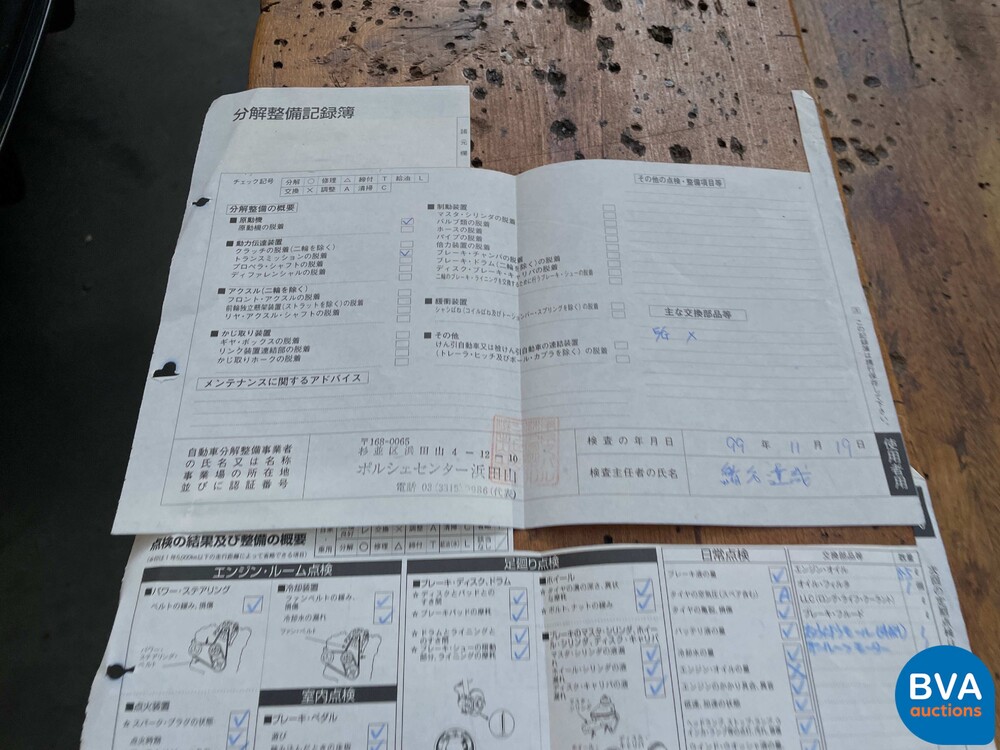 分解整備記録簿
チェック記号 分解 ○ 修理 △ 締付 T 給油 L
交換 × 調整 A 清掃 C
分解整備の概要
■原動機
原動機の脱着
■動力伝達装置
クラッチの脱着(二輪を除く)
トランスミッションの脱着
プロペラ・シャフトの脱着
ディファレンシャルの脱着
■アクスル(二輪を除く)
フロント・アクスルの脱着
前輪独立懸架装置(ストラットを除く)の脱着
リヤ・アクスル・シャフトの脱着
■かじ取り装置
ギヤ・ボックスの脱着
リンク装置連結部の脱着
かじ取りホークの脱着
■制動装置
マスタ・シリンダの脱着
バルブ類の脱着
ホースの脱着
パイプの脱着
倍力装置の脱着
ブレーキ・チャンバの脱着
ブレーキ・ドラム(二輪を除く)の脱着
ディスク・ブレーキ・キャリパの脱着
二輪のブレーキ・ライニングを交換するために行うブレーキ・シューの脱着
■緩衝装置
■その他
けん引自動車又は被けん引自動車の連結装置
(トレーラ・ヒッチ及びボール・カプラを除く)の脱着
その他の点検・整備項目等
主な交換部品等
メンテナンスに関するアドバイス
自動車分解整備事業者
の氏名又は名称
事業場の所在地
並びに認証番号
〒168-0065
杉並区浜田山4-12-10
ポルシェセンター浜田山
検査の年月日 99 年 11 月 19 日
検査主任者の氏名
使用者用
点検の結果及び整備の概要
エンジン・ルーム点検
■パワー・ステアリング
ベルトの緩み、損傷
パワー・
ステアリング・
ベルト
■冷却装置
ファンベルトの緩み、
損傷
冷却水の漏れ
ファン・ベルト
■点火装置
☆スパーク・プラグの状態
点火時期
室内点検
■ブレーキ・ペダル
遊び
足廻り点検
■ブレーキ・ディスク、ドラム
☆ディスクとパッドとの
すき間
☆ブレーキパッドの摩耗
☆ドラムとライニングと
のすき間
☆ブレーキ・シューの摺動
部分、ライニングの摩耗
■ホイール
☆タイヤの溝の深さ、異状
な摩耗
☆ボルト、ナットの緩み
■ブレーキのマスタ・シリンダ、ホイー
ル・シリンダ、ディスク・キャリパ
マスタ・シリンダの液漏れ
ホイール・シリンダの液漏れ
ディスク・キャリパの液漏れ
日常点検
ブレーキ液の量
タイヤの空気圧(スペア含む)
タイヤの亀裂、損傷
バッテリ液の量
冷却水の量
エンジン・オイルの量
エンジンのかかり具合、異音
低速、加速の状態
交換部品等 数量
エンジン・オイル
オイル・フィルタ
LLC(ロング・ライフ・クーラント)
ブレーキ・フルード
BVA
auctions